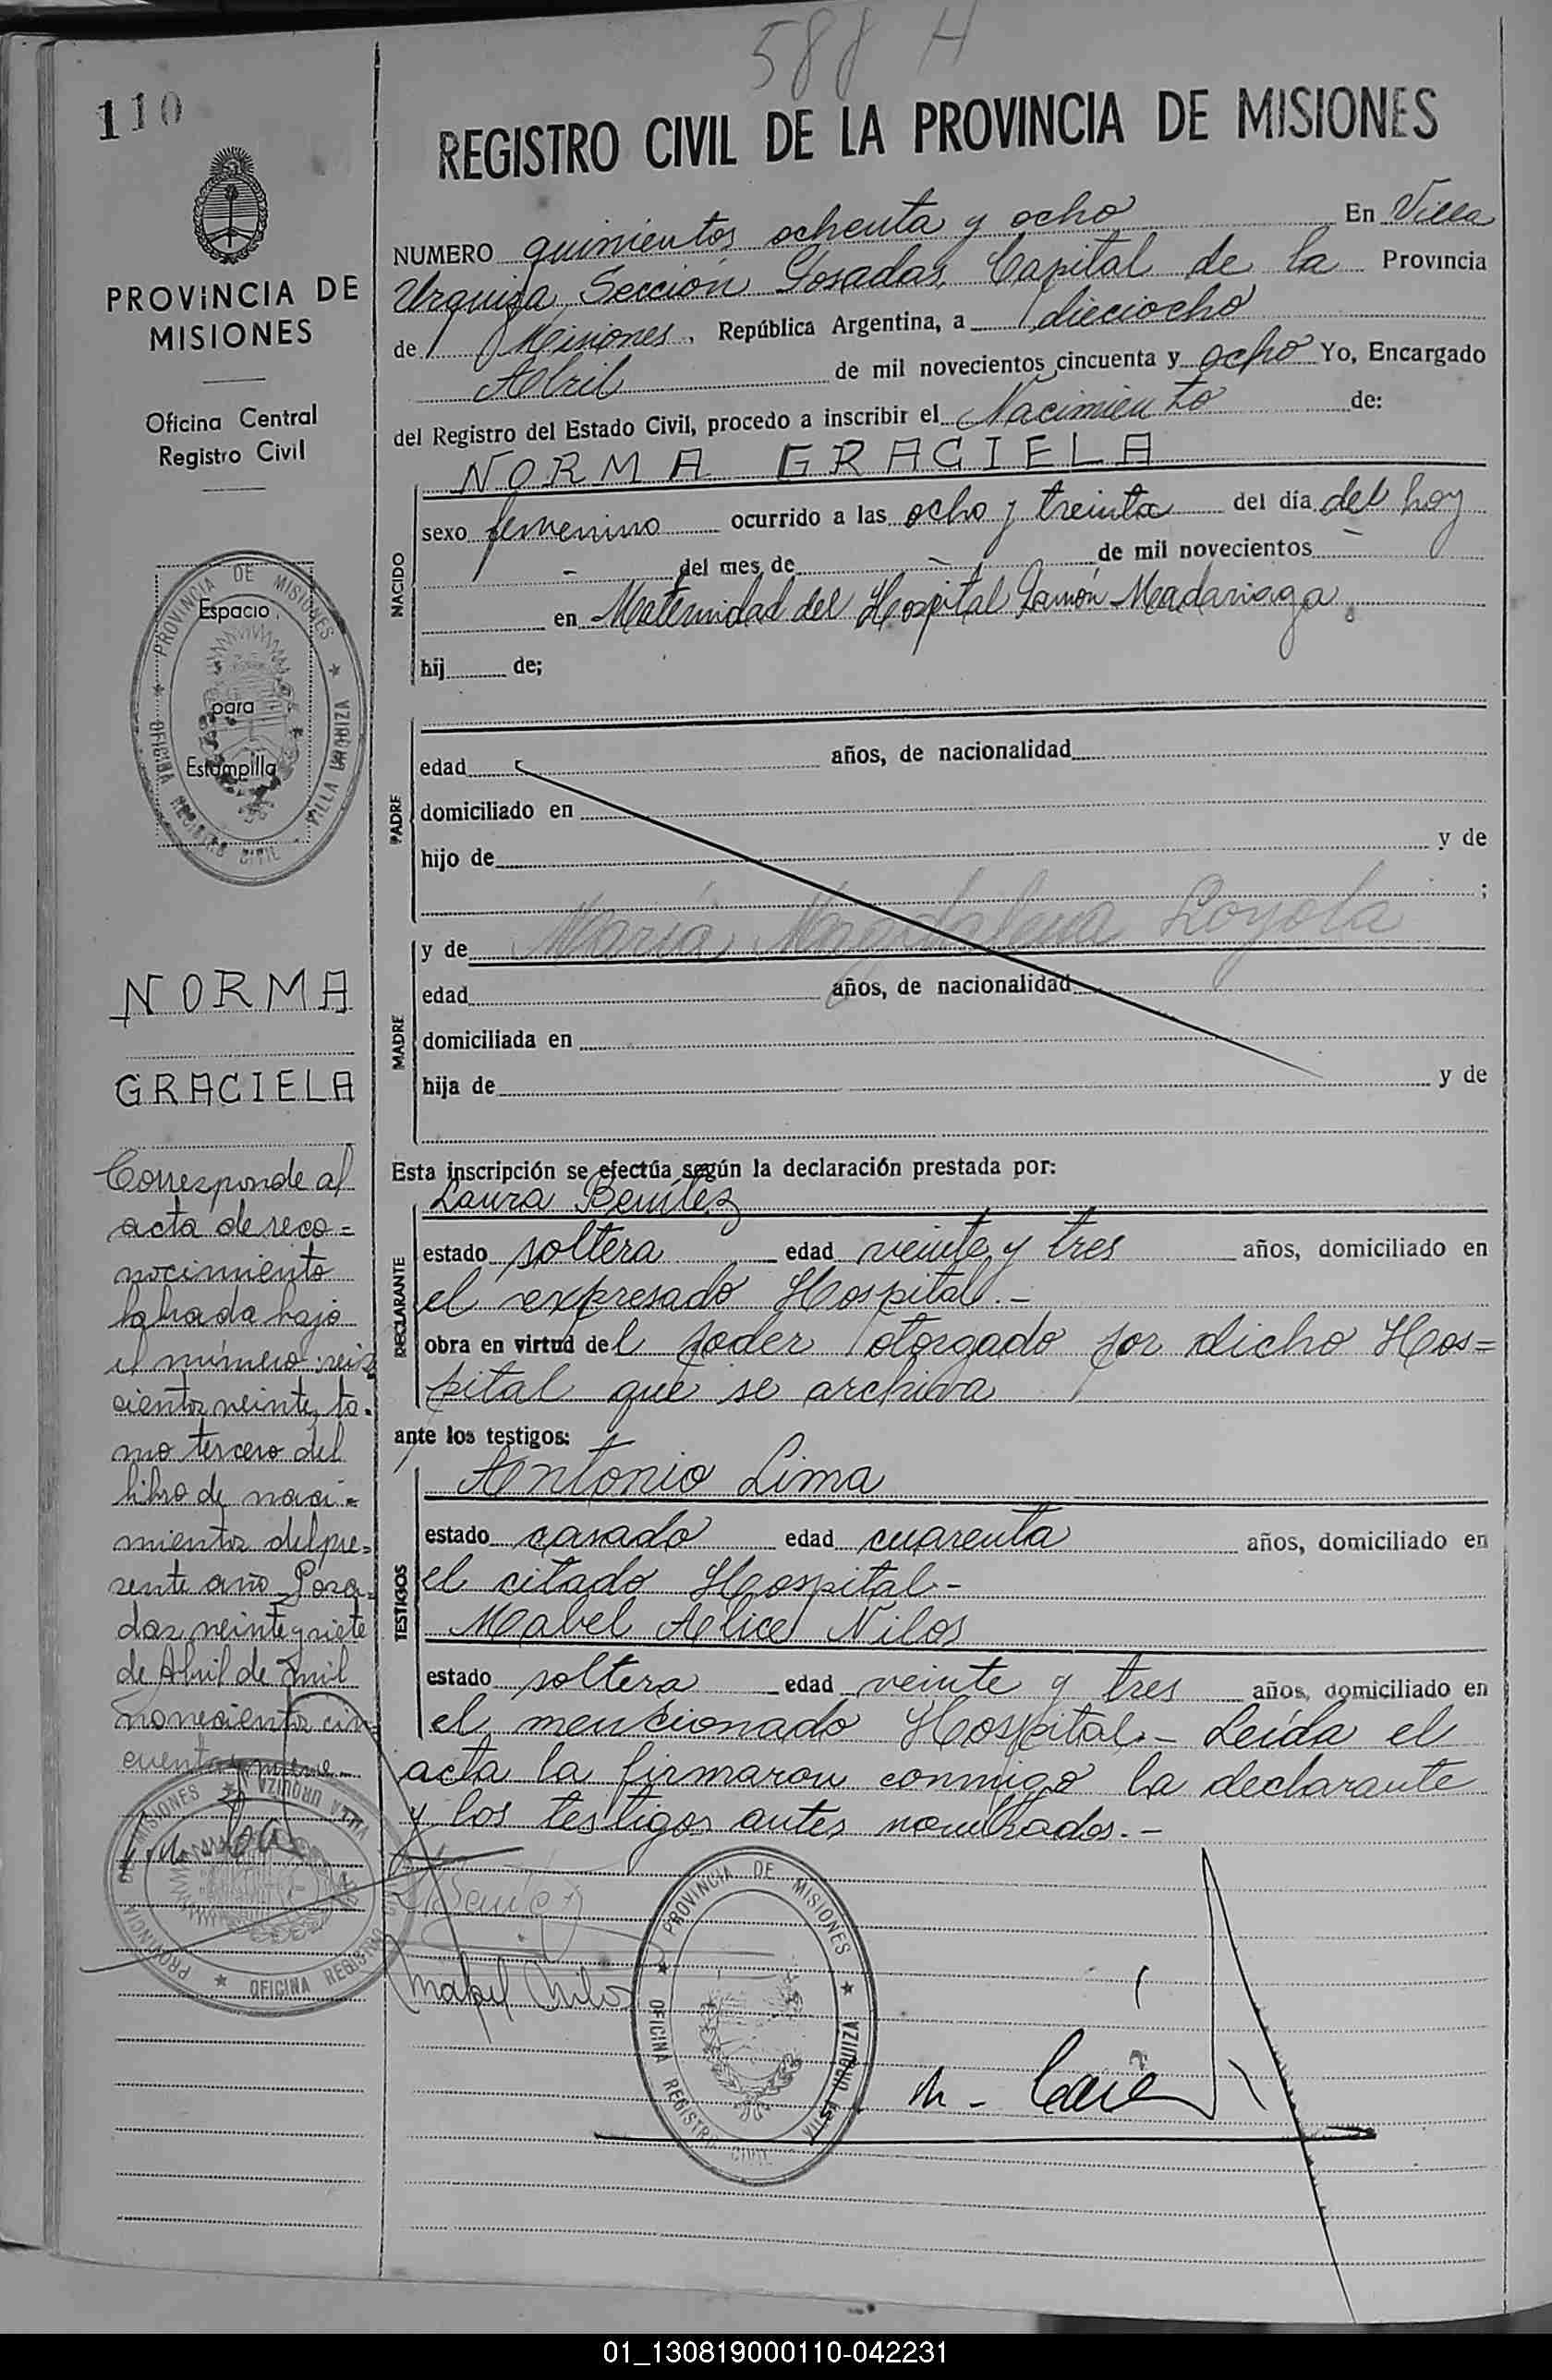 588 H
110
REGISTRO CIVIL DE LA PROVINCIA DE MISIONES
PROVINCIA DE
MISIONES
Oficina Central
Registro Civil
NUMERO quinientos ochenta y ocho En Villa
Urquiza Sección Posadas, Capital de la Provincia
de Misiones, República Argentina, a dieciocho
Abril de mil novecientos cincuenta y ocho Yo, Encargado
del Registro del Estado Civil, procedo a inscribir el Nacimiento de:
NORMA GRACIELA
NACIDO
sexo femenino ocurrido a las ocho y treinta del día del hoy
- del mes de - de mil novecientos -
en Maternidad del Hospital Ramón Madariaga
hij de;
PROVINCIA DE MISIONES
OFICINA REGISTRO CIVIL
VILLA URQUIZA
Espacio
para
Estampilla
PADRE
edad años, de nacionalidad
domiciliado en
hijo de y de
;
MADRE
y de María Magdalena Loyola
edad años, de nacionalidad
domiciliada en
hija de y de
NORMA
GRACIELA
Corresponde al
acta de reco=
nocimiento
labrada bajo
el número seis
cientos veinte, to-
mo tercero del
libro de naci-
mientos del pre-
sente año. Posa-
das, veinte y siete
de Abril de mil
novecientos cin-
cuenta y nueve.-
Esta inscripción se efectúa según la declaración prestada por:
Laura Benítez
DECLARANTE
estado soltera edad veinte y tres años, domiciliado en
el expresado Hospital.-
obra en virtud del poder otorgado por dicho Hos=
pital que se archiva
ante los testigos:
Antonio Lima
TESTIGOS
estado casado edad cuarenta años, domiciliado en
el citado Hospital-
Mabel Alice Nilos
estado soltera edad veinte y tres años, domiciliado en
el mencionado Hospital.- Leída el
acta la firmaron conmigo la declarante
y los testigos antes nombrados.-
PROVINCIA DE MISIONES
OFICINA REGISTRO
VILLA URQUIZA
L Benítez
Mabel Nilos
PROVINCIA DE MISIONES
OFICINA REGISTRO CIVIL
VILLA URQUIZA
01_130819000110-042231